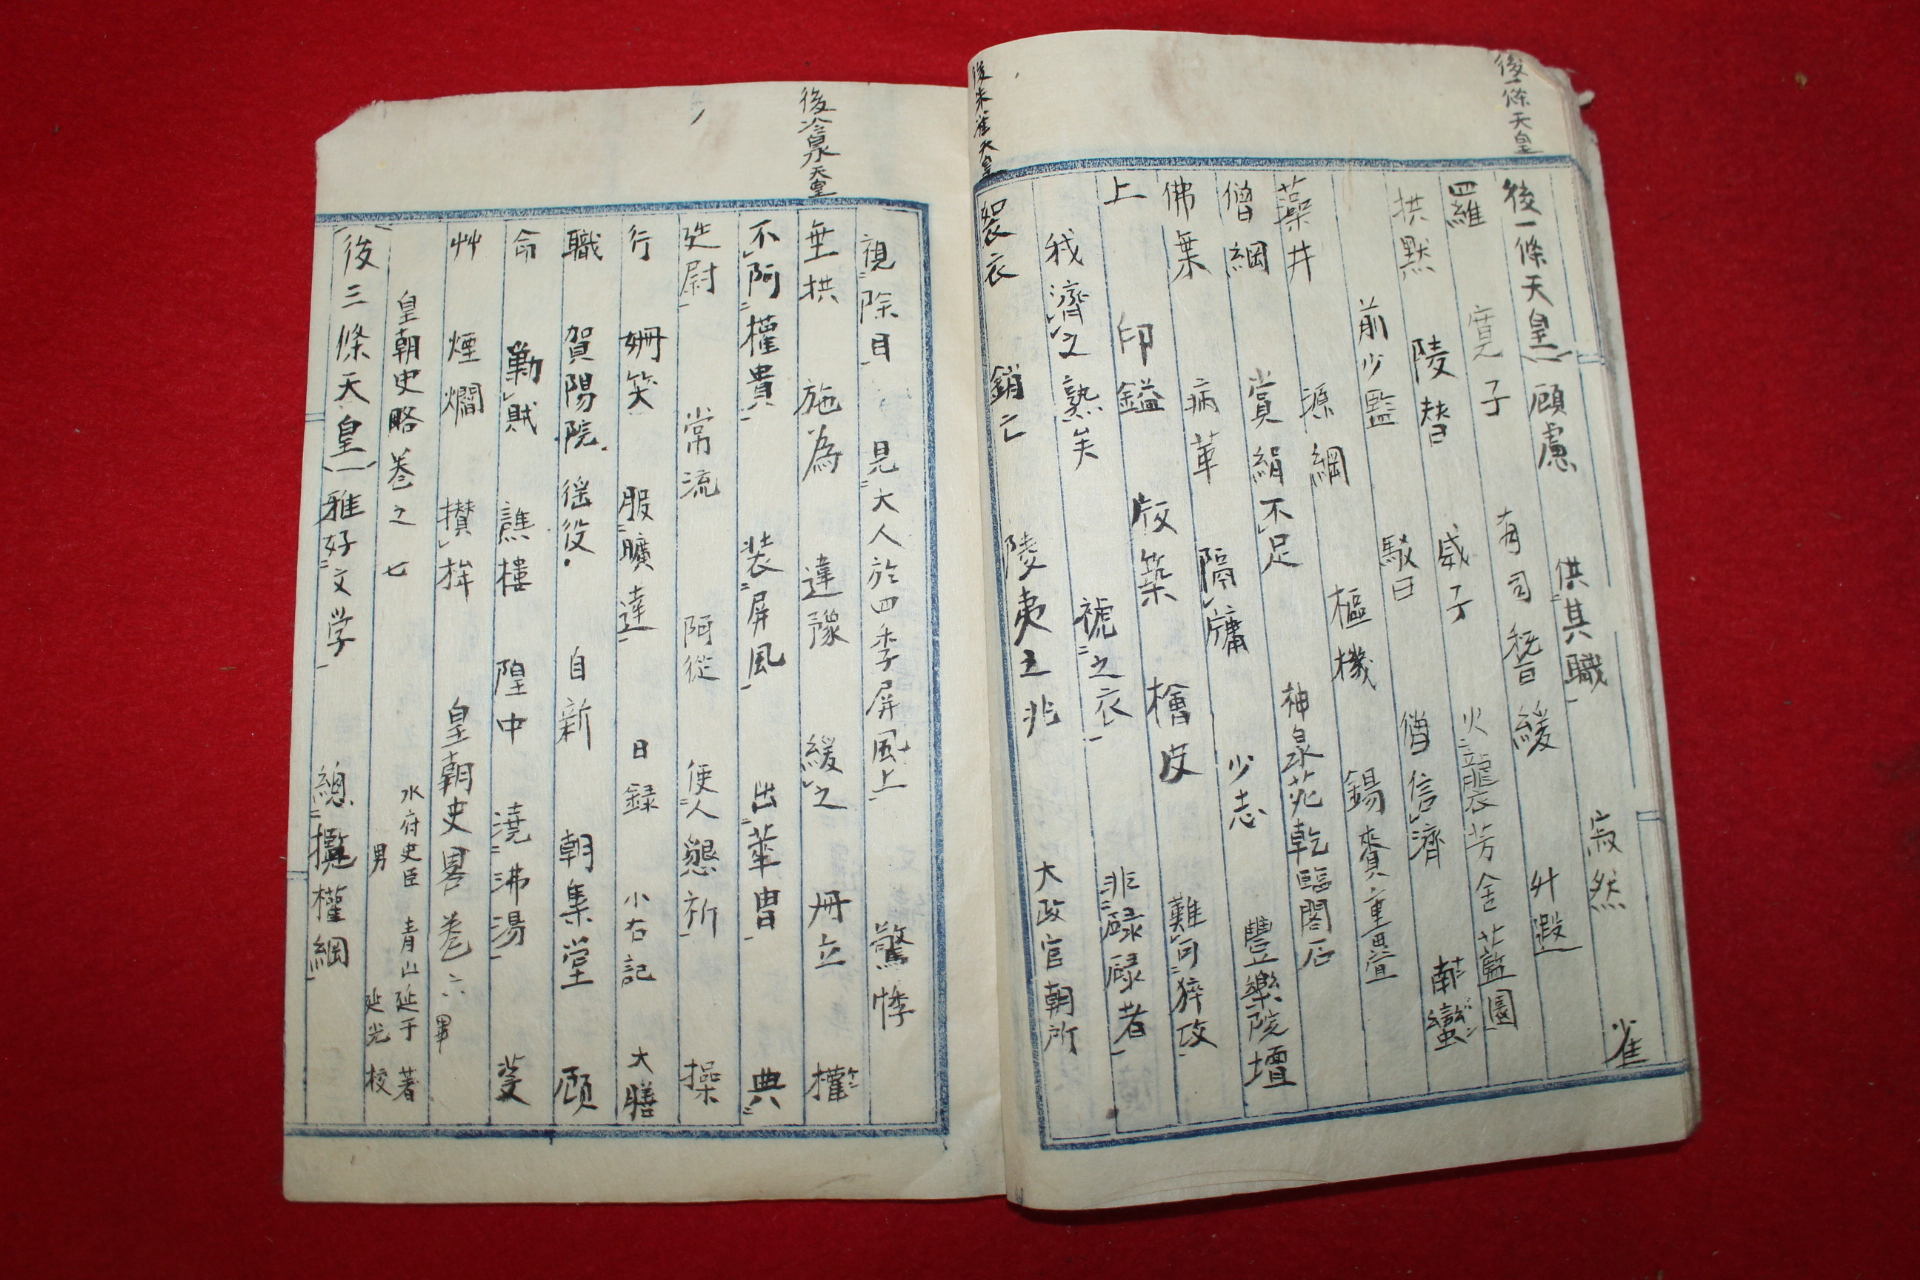 後一條天皇
後一條天皇 顧慮 供其職 寂然 雀
羅 寛子 有司 稽緩 升遐
拱黙 陵替 威子 火襲芳舎藍園 南蠻
前少監 駁曰 僧信濟
藻井 源綱 樞機 錫賚重畳
僧綱 賞絹不足 神泉苑乾臨閣石
佛葉 病革 隔牆 少志 豐樂院壇
上 印鎰 版築 檜皮 難問猝攻
我濟之熟矣 褫之衣 非碌碌者
袈衣 銷亡 陵夷之兆 大政官朝所
後朱雀天皇
後冷泉天皇
視除目 見大人於四季屏風上 驚悸
垂拱 施為 違豫 緩之 冊立 權
不阿權貴 装屏風 出華冑 典
廷尉 常流 阿從 使人懇祈 操
行 姍笑 服曠達 日録 小右記 大膳
職 賀陽院 徭役 自新 朝集堂 顧
命 勦賊 譙樓 隍中 澆沸湯 芟
艸 煙爛 攅 皇朝史畧巻六畢
皇朝史略巻之七 水府史臣 青山延于著
男 延光校
後三條天皇 雅好文学 總攬權綱